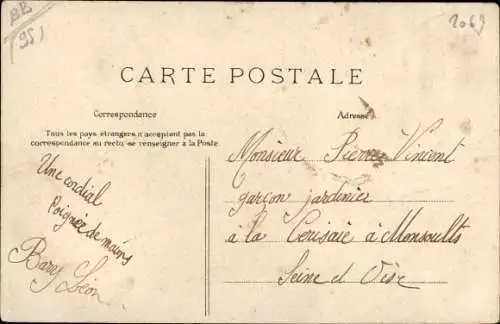 BB
951
2069
CARTE POSTALE
Correspondance
Adresse
Tous les pays étrangers n'acceptent pas la
correspondance au recto, se renseigner à la Poste.
Une cordial
Poignée de mains
Bary Léon
Monsieur Pierre Vincent
garçon jardinier
à la Cerisaie à Monsoults
Seine et Oise